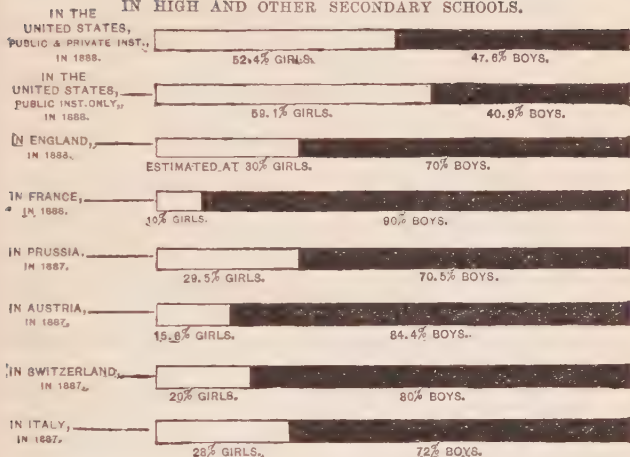 IN HIGH AND OTHER SECONDARY SCHOOLS.
IN THE
UNITED STATES,
PUBLIC & PRIVATE INST.,
IN 1888.
52.4% GIRLS. 47.6% BOYS.
IN THE
UNITED STATES,
PUBLIC INST. ONLY,
IN 1888.
59.1% GIRLS. 40.9% BOYS.
IN ENGLAND,
IN 1888.
ESTIMATED AT 30% GIRLS. 70% BOYS.
IN FRANCE,
IN 1888.
10% GIRLS. 90% BOYS.
IN PRUSSIA.
IN 1887.
29.5% GIRLS. 70.5% BOYS.
IN AUSTRIA,
IN 1887.
15.6% GIRLS. 84.4% BOYS.
IN SWITZERLAND,
IN 1887.
20% GIRLS. 80% BOYS.
IN ITALY,
IN 1887.
28% GIRLS. 72% BOYS.